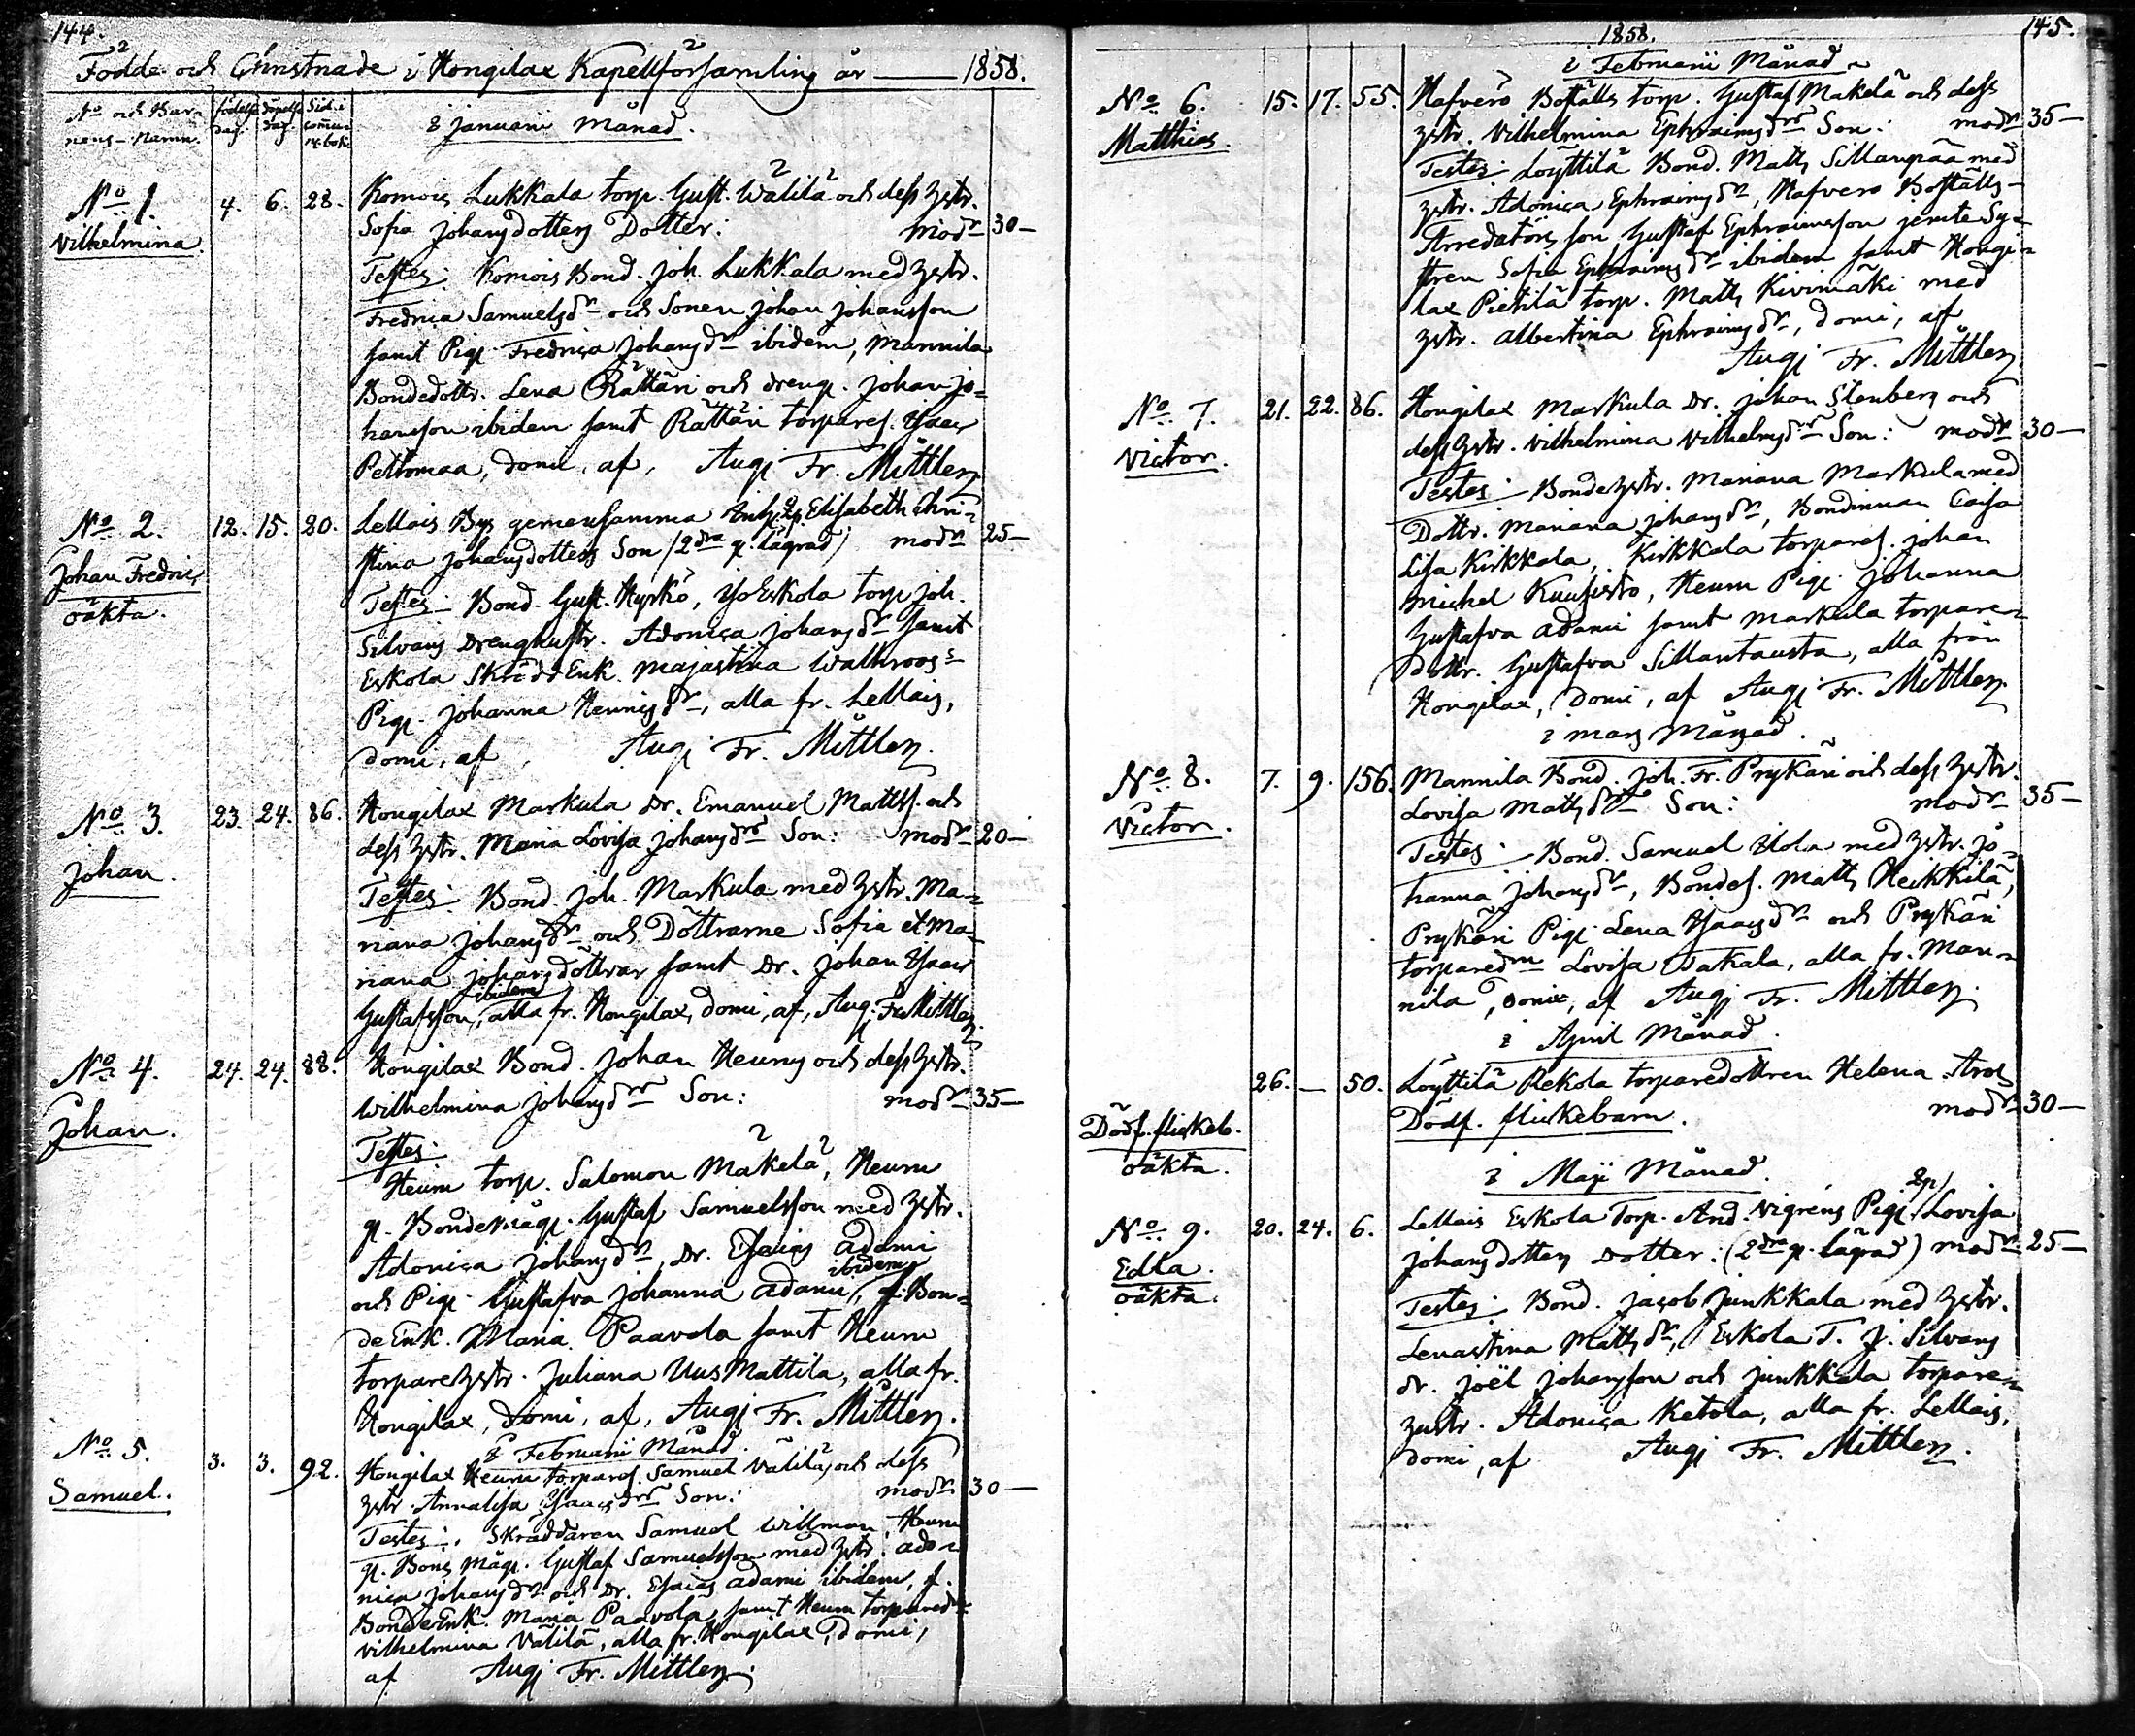 144.
Födde och Christnade i Hongilax Kapellförsamling år 1858.
No och Bar-
nens-Namn. födelse dag. döpelse dag. Sid. i commun. bok.
i Januarii Månad.
No 1. 4. 6. 28. Komois Lukkala torp. Gust. Wälilä och dess hstr.
Vilhelmina. Sofia Johansdotters Dotter: modr 30-
Testes: Komois Bond. Joh. Lukkala med hstr.
Fredrica Samuelsdr och Sonen Johan Johansson
samt Pig. Fredrica Johansdr ibidem, Mannila
Bondedottr. Lena Rättäri och dreng. Johan Jo-
hansson ibidem samt Rättäri torpares. Isaac
Peltomaa, domi, af, Augi Fr. Mittler.
No 2. 12. 15. 20. Lellais Bys gemensamma Elisabeth Chri-
Johan Fredric stina Johansdotters Son (2dra g. lägrad) modr 25-
oäkta. Testes: Bond. Gust. Hyrkö, Eskola torp Joh.
Silvans Drenghustr. Adonica Johansdr samt
Eskola Skrädd Enk. Majastina Wallroos
Pig. Johanna Hennisdr, alla fr. Lellais,
domi, af, Augi Fr. Mittler.
No 3. 23. 24. 86. Hongilax Markula Dr. Emanuel Matts. och
Johan. dess hstr. Maria Lovisa Johansdrs Son: modr 20-
Testes: Bond. Joh. Markula med hstr. Ma-
riana Johansdr och Döttrarne Sofia et Ma-
riana Johansdöttrar samt Dr. Johan Isaac
ibidem
Gustafsson, alla fr. Hongilax, domi, af, Aug. Fr. Mittler.
No 4. 24. 24. 88. Hongilax Bond. Johan Heurus och dess hstr.
Johan. Wilhelmina Johansdrs Son: modr 35-
Testes:
Heuru torp. Salomon Mäkelä, Heuru
g. Bondemåg. Gustaf Samuelsson med hstr.
Adonica Johansdr, Dr. Esaias Adami
ibidem
och Pig. Gustafva Johanna Adami, f. Bon-
de Enk. Maria Paavola samt Heuru
torparehstr. Juliana Uus Mattila, alla fr.
Hongilax, domi, af, Augi Fr. Mittler.
i Februarii Månad.
No 5. 3. 3. 92. Hongilax Heuru torpares. Samuel Välilä, och dess
Samuel. hstr. Annalisa Isaacsdrs Son: modr 30-
Testes: Skräddaren Samuel Willman, Heuru
g. Bons måg. Gustaf Samuelsson med hstr. Ado-
nica Johansdr och Dr. Esaias Adami ibidem, f.
Bonde Enk. Maria Paavola, samt Heuru torparedr
Vilhelmina Välilä, alla fr. Hongilax, domi,
af Augi Fr. Mittler.
1858. 145.
i Februarii Månad
No 6. 15. 17. 55. Hafverö Boställs torp. Gustaf Mäkelä och dess
Matthias. hstr. Vilhelmina Ephraimsdrs Son: modr 35-
Testes: Löyttilä Bond. Matts Sillanpää med
hstr. Adonica Ephraimsdr, Hafverö Boställs-
Arredators son Gustaf Ephraimsson jemte Sy-
stren Sofia Ephraimsdr ibidem samt Hongi-
lax Pietilä torp. Matts Kivimäki med
hstr. Albertina Ephraimsdr, domi, af
Augi Fr. Mittler.
No 7. 21. 22. 86. Hongilax Markula Dr. Johan Stenberg och
Victor. dess hstr. Vilhelmina Vilhelmsdrs Son: modr 30-
Testes: Bondehstr. Mariana Markula med
Dottr. Mariana Johansdr, Bondinnan Caisa
Lisa Kirkkala, Kirkkala torpares. Johan
Michel Kuusisto, Heuru Pig. Johanna
Gustafva Adami samt Markula torpare-
dottr. Gustafva Sillantausta, alla från
Hongilax, domi, af Augi Fr. Mittler.
i mars Månad.
No 8. 7. 9. 156. Mannila Bond. Joh. Fr. Prykäri och dess hstr.
Victor. Lovisa Mattsdrs Son: modr 35-
Testes: Bond. Samuel Uola med hstr. Jo-
hanna Johansdr, Bondes. Matts Heikkilä,
Prykäri Pig. Lena Isaacsdr och Prykäri
torparedrn Lovisa Takala, alla fr. Man-
nila, domi, af Augi Fr. Mittler.
i April Månad.
26. - 50. Löyttilä Rekola torparedottren Helena
Dödf. flickeb. Dödf. flickebarn. modr 30-
oäkta.
i Maji Månad.
No 9. 20. 24. 6. Lellais Eskola Torp. And. Vigréns Pig. Lovisa
Edla. Johansdotters Dotter: (2dra g. lägrad) modr 25-
oäkta. Testes: Bond. Jacob Junkkala med hstr.
Lenastina Mattsdr, Eskola T. J. Silvans
dr. Joël Johansson och Junkkala torpare-
hustr. Adonica Ketola, alla fr. Lellais,
domi, af Augi Fr. Mittler.